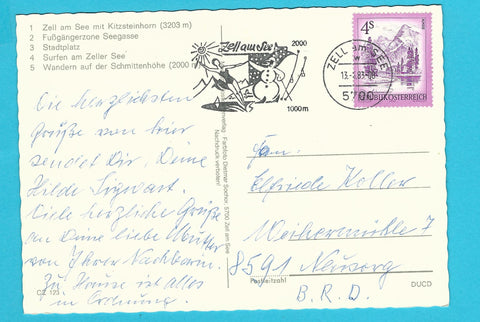 1 Zell am See mit Kitzsteinhorn (3203 m)
2 Fußgängerzone Seegasse
3 Stadtplatz
4 Surfen am Zeller See
5 Wandern auf der Schmittenhöhe (2000 m
Zell am See
2000
1000m
ZELL am SEE
5700
4S
REPUBLIK ÖSTERREICH
Die herzlichsten
Grüße von hier
sendet Dir, Deine
Hilde Sigwart.
Viele herzliche Grüße
an Deine liebe Mutter
von Ihrer Nachbarin.
Zu Hause ist alles
in Ordnung.
CZ 123
Farbfoto Dietmar Sochor, 5700 Zell am See
Nachdruck verboten!
Elfriede Koller
Weihermühle 7
8591 Neusorg
Postleitzahl
B.R.D.
DUCD